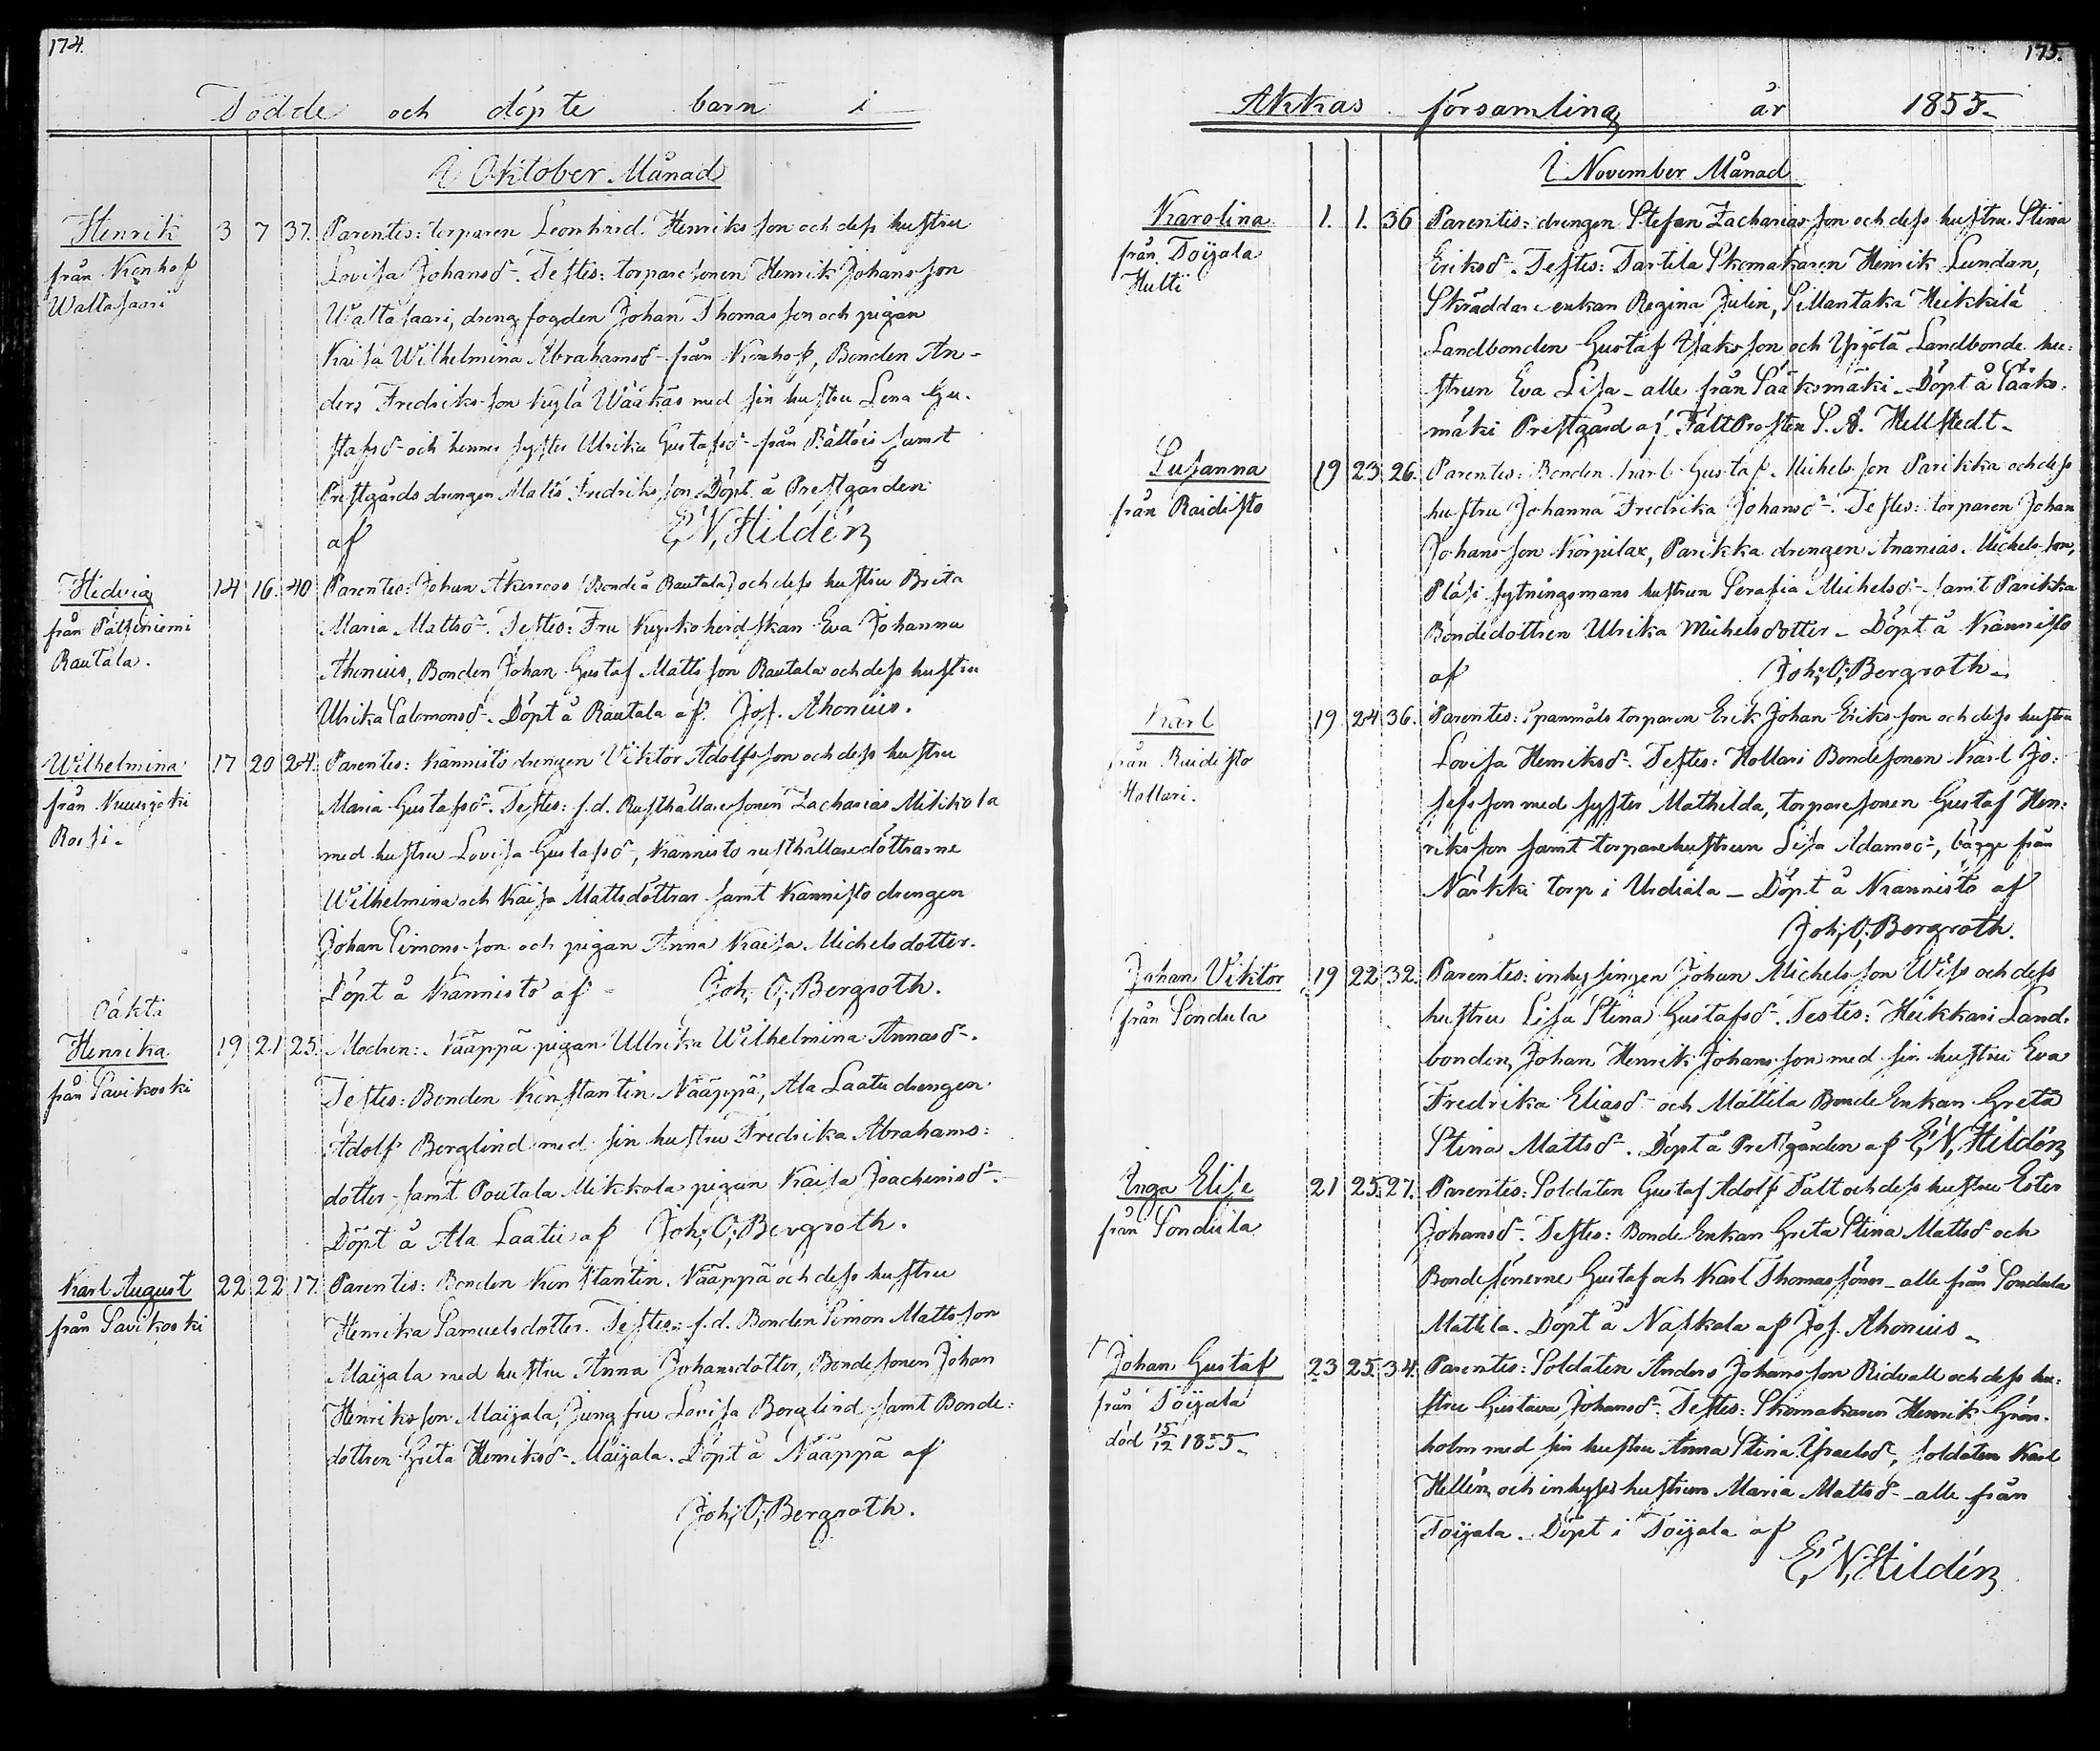 174.
Födde och döpte barn i
I Oktober Månad
Henrik 3 7 37. Parentes: torparen Leonhard Henriksson och dess hustru
från Konho
Lovisa Johansd:r. Testes: torparesonen Henrik Johansson
Waltasaari
Waltasaari, drengfogden Johan Thomasson och pigan
Kaisa Wilhelmina Abrahamsd:r från Konho, Bonden An-
ders Fredriksson Kylä Wääkäs med sin hustru Lena Gu-
stafsd:r och hennes syster Ulrika Gustafsd:r från samt
Prestgårds drengen Matts Fredriksson. Döpt å Prestgården
af E. N. Hildén
Hedvig 14 16. 40 Parentes: Johan Åkerroos (Bonde å Rautala) och dess hustru Brita
från Pätsiniemi
Maria Mattsd:r. Testes: Fru Kyrkoherdskan Eva Johanna
Rautala.
Ahonius, Bonden Johan Gustaf Mattsson Rautala och dess hustru
Ulrika Salomonsd:r. Döpt å Rautala af Jos. Ahonius.
Wilhelmina 17 20 24. Parentes: Kannisto drengen Viktor Adolfsson och dess hustru
från Kuurjoki
Maria Gustafsd:r. Testes: f.d. Rusthållaresonen Zacharias Mikkola
Rossi.
med hustru Lovisa Gustafsd:r, Kannisto rusthållaredöttrarne
Wilhelmina och Kaisa Mattsdöttrar samt Kannisto drengen
Johan Simonsson och pigan Anna Kaisa Michelsdotter.
Döpt å Kannisto af Joh. O. Bergroth.
oäkta
Henrika 19 21 25. Modren: Nääppä pigan Ullrika Wilhelmina Annasd:r.
från Savikoski
Testes: Bonden Konstantin Nääppä, Ala Laatu drengen
Adolf Berglind med sin hustru Fredrika Abrahams-
dotter samt Poutala Mikkola pigan Kaisa Joachimsd:r.
Döpt å Ala Laatu af Joh. O. Bergroth.
Karl August 22 22 17. Parentes: Bonden Konstantin Nääppä och dess hustru
från Savikoski
Henrika Samuelsdotter. Testes: f.d. Bonden Simon Mattsson
Maijala med hustru Anna Johansdotter, Bondesonen Johan
Henriksson Maijala, Jungfru Lovisa Berglind samt Bonde-
dottren Greta Henriksd:r Maijala. Döpt å Nääppä af
Joh. O. Bergroth.
175.
Akkas församling år 1855.
I November Månad
Karolina 1. 1. 36 Parentes: drengen Stefan Zachariasson och dess hustru Stina
från Toijala
Eriksd:r. Testes: Tartila Skomakaren Henrik Lundan,
Hulti
Skräddareenkan Regina Julin, Sillantaka Heikkilä
Landbonden Gustaf Isaksson och Yrjölä Landbonde hu-
strun Eva Lisa - alle från Sääksmäki. Döpt å Sääks-
mäki Prestgård af FältProsten S. A. Hellstedt.
Susanna 19 23 26. Parentes: Bonden Karl Gustaf Michelsson Parikka och dess
från Raidisto
hustru Johanna Fredrika Johansd:r. Testes: torparen Johan
Johansson Korpilax, Parikka drengen Ananias Michelsson,
sytningsmans hustrun Serafia Michelsd:r samt Parikka
Bondedottren Ulrika Michelsdotter - Döpt å Kannisto
af Joh. O. Bergroth.
Karl 19 24 36. Parentes: Spanmåls torparen Erik Johan Eriksson och dess hustru
från Raidisto
Lovisa Henriksd:r. Testes: Hollari Bondesonen Karl Jo-
Hollari.
sefsson med syster Mathilda, torparesonen Gustaf Hen-
riksson samt torparehustrun Lisa Adamsd:r, bägge från
Närkki torp i Urdiala - Döpt å Kannisto af
Joh. O. Bergroth.
Johan Viktor 19 22 32. Parentes: inhysingen Johan Michelsson Wiss och dess
från Sondula
hustru Lisa Stina Gustafsd:r. Testes: Heikkari Land-
bonden Johan Henrik Johansson med sin hustru Eva
Fredrika Eliasd:r och Mattila Bonde Enkan Greta
Stina Mattsd:r. Döpt å Prestgården af E. N. Hildén
Inga Elise 21 25. 27. Parentes: Soldaten Gustaf Adolf Falt och dess hustru Ester
från Sondula
Johansd:r. Testes: Bonde Enkan Greta Stina Mattsd:r och
Bondesönerne Gustaf och Karl Thomassöner - alle från Sondula
Mattila. Döpt å Naskala af Jos. Ahonius.
† Johan Gustaf 23 25. 34. Parentes: Soldaten Anders Johansson Ridvall och dess hu-
från Toijala
stru Gustava Johansd:r. Testes: Skomakaren Henrik Grön-
död 15/12 1855.
holm med sin hustru Anna Stina Israelsd:r, soldaten Karl
Hellén och inhyseshustrun Maria Mattsd:r - alle från
Toijala. Döpt i Toijala af
E. N. Hildén